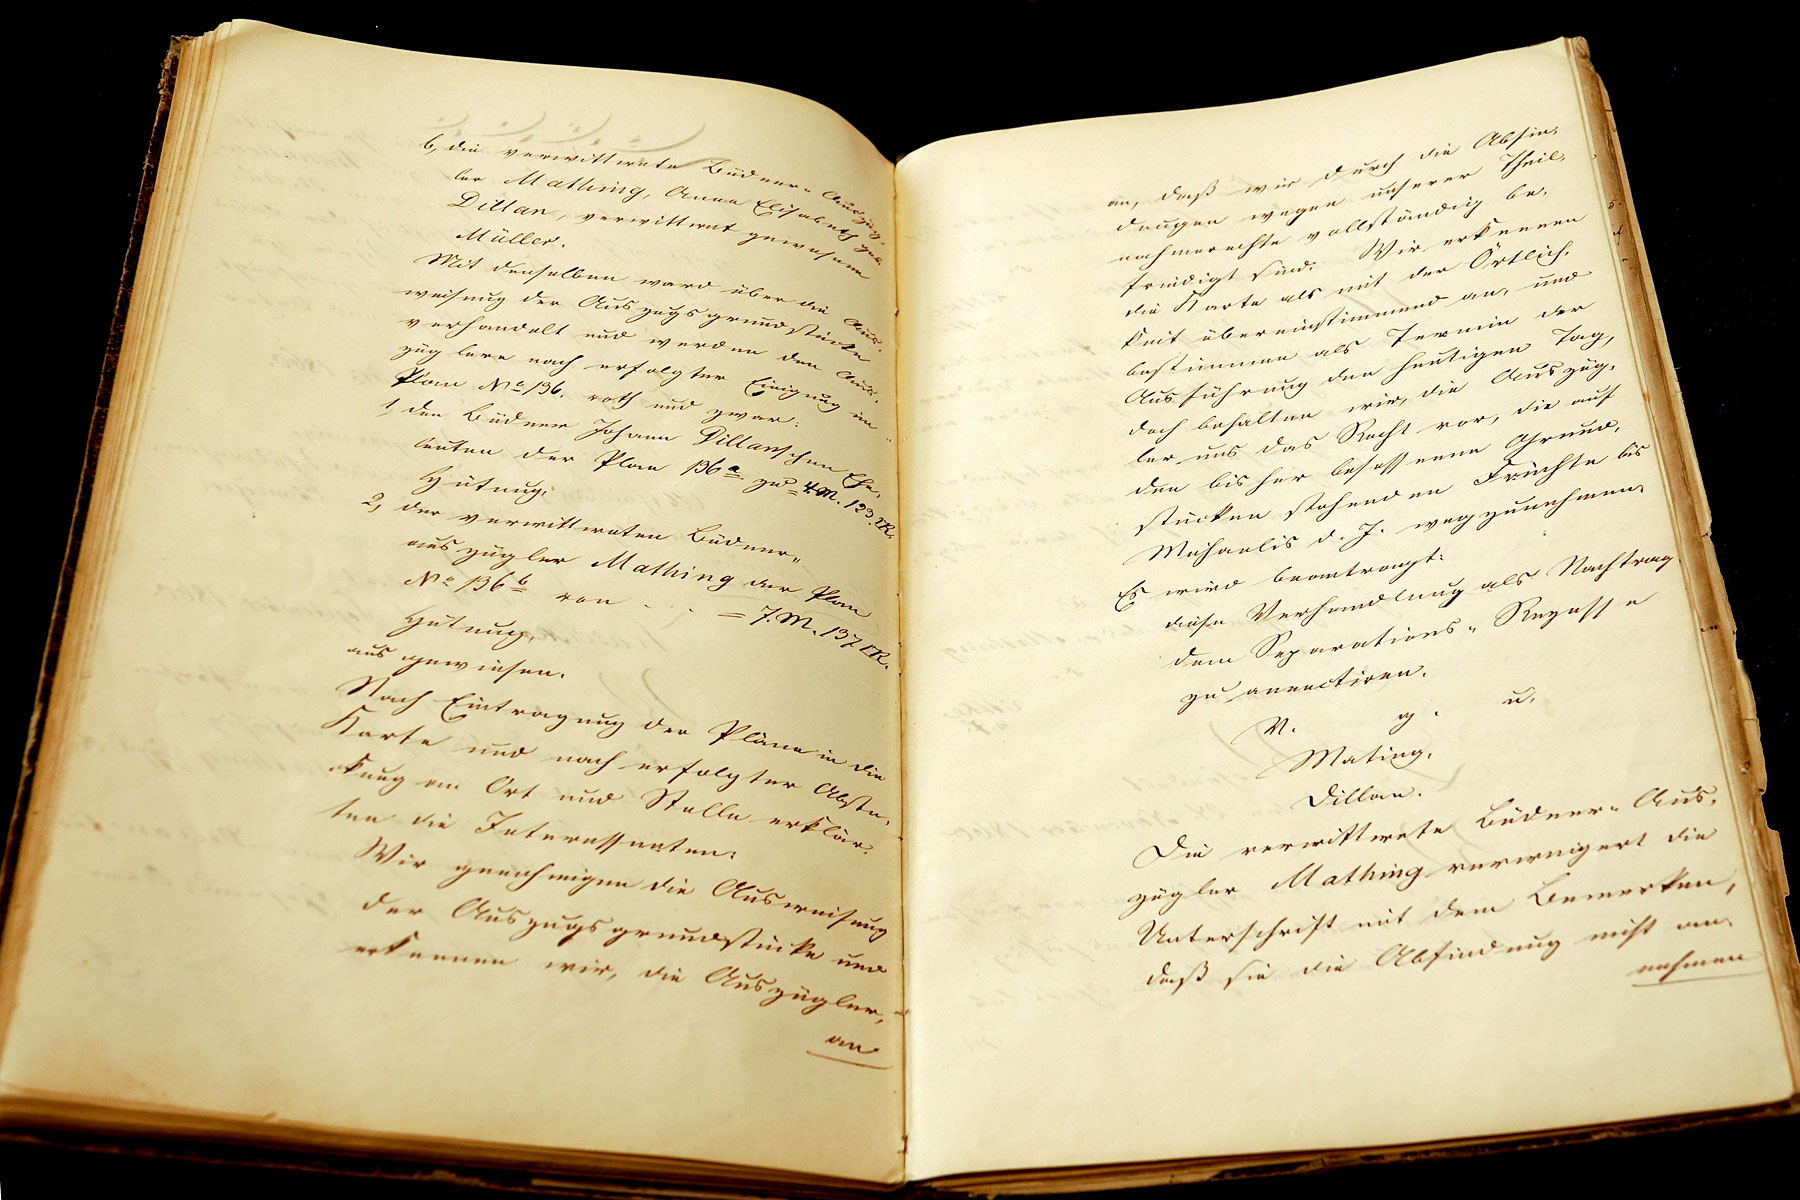 6, die verwittwete Büdner- Auszüg-
ler Mathing, Anna Elisabeth geb.
Dillan, verwittwet gewesene
Müller.
Mit denselben ward über die Aus-
weisung der Auszugsgrundstücke
verhandelt und werden den Aus-
züglern nach erfolgter Einigung im
Plan No 136. roth und zwar:
1, den Büdner Johann Dillanschen Ehe-
leuten der Plan 136a zu = 4. M. 123 □R.
Hütung,
2, der verwittweten Büdner-
auszügler Mathing der Plan
No 136b von . . = 7. M. 137 □R.
Hütung,
ausgewiesen.
Nach Eintragung der Pläne in die
Karte und nach erfolgter Abste-
ckung an Ort und Stelle erklär-
ten die Interessenten:
Wir genehmigen die Ausweisung
der Auszugsgrundstücke und
erkennen wir, die Auszügler,
an
an, daß wir durch die Abfin-
dungen wegen unserer Theil-
nahmerechte vollständig be-
friedigt sind. Wir erkennen
die Karte als mit der Örtlich-
keit übereinstimmend an, und
bestimmen als Termin der
Ausführung den heutigen Tag,
doch behalten wir, die Auszüg-
ler uns das Recht vor, die auf
den bisher besessenen Grund-
stücken stehenden Früchte bis
Michaelis d. J. wegzunehmen.
Es wird beantragt:
diese Verhandlung als Nachtrag
dem Separations- Rezesse
zu annectiren.
V. g. u.
Mating.
Dillan.
Die verwittwete Büdner- Aus-
zügler Mathing verweigert die
Unterschrift mit dem Bemerken,
daß sie die Abfindung nicht an-
nehmen